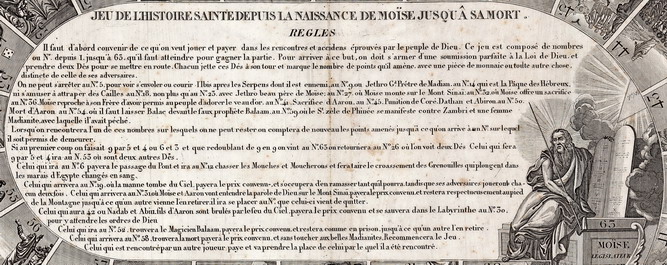 JEU DE L'HISTOIRE SAINTE DEPUIS LA NAISSANCE DE MOÏSE JUSQU'À SA MORT.
REGLES
Il faut d'abord convenir de ce qu'on veut jouer et payer dans les rencontres et accidens éprouvés par le peuple de Dieu. Ce jeu est composé de nombres
ou Nos. depuis 1, jusqu'à 63. qu'il faut atteindre pour gagner la partie. Pour arriver à ce but, on doit s'armer d'une soumission parfaite à la Loi de Dieu, et
prendre deux Dés pour se mettre en route. Chacun jette ces Dés à son tour et marque le nombre de points qu'il amène, avec une pièce de monnaie ou toute autre chose,
distincte de celle de ses adversaires.
On ne peut s'arrêter au N°. 5. pour voir
ni s'amuser à attraper des Cailles au N°. 18. non plus qu'au N°. 23. avec Jethro beau père de Moïse; au N°. 27. où Moïse monte sur le Mont Sinaï au N°. 32. où Moïse offre un sacrifice
au N°. 36. Moïse reproche à son Frère d'avoir permis au peuple d'adorer le veau d'or. au N°. 41. Sacrifice d'Aaron. au N°. 45. Punition de Coré, Dathan et Abiron. au N°. 50.
Mort d'Aaron. au N°. 54. où il faut laisser Balac devant le faux prophète Balaam. au N°. 59. où le St. zèle de Phinée se manifeste contre Zambri et une femme
Madianite, avec laquelle il avait péché.
Lorsqu'on rencontrera l'un de ces nombres sur lesquels on ne peut rester on comptera de nouveau les points amenés jusqu'à ce qu'on arrive à un N°. sur lequel
il soit permis de demeurer.
Si au premier coup on faisait 9 par 5 et 4 ou 6 et 3 et que redoublant de 9 en 9 on vint au N°. 63 on retournera au N°. 26 où l'on voit deux Dés. Celui qui fera
9 par 5 et 4 ira au N°. 53 où sont deux autres Dés.
Celui qui ira au N°. 6 payera le passage du Pont et ira au N°. 12 chasser les Mouches et Moucherons et fera taire le croassement des Grenouilles qui plongent dans
les marais d'Egypte changés en sang.
Celui qui arrivera au N°. 19. où la manne tombe du Ciel, payera le prix convenu, et s'occupera d'en ramasser tant qu'il pourra, tandis que ses adversaires joueront cha-
cun deux fois. Celui qui arrivera au N°. 31 où Moïse et Aaron vont entendre la parole de Dieu sur le Mont Sinaï payera le prix convenu, et restera respectueusement au pied
de la Montagne jusqu'à ce qu'un autre vienne l'en retirer, il ira se placer au N°. que celui-ci vient de quitter.
Celui qui aura 42 où Nadab et Abiu, fils d'Aaron sont brulés par le feu du Ciel, payera le prix convenu et se sauvera dans le Labyrinthe au N°. 30.
pour y attendre les ordres de Dieu
Celui qui ira au N°. 52. trouvera le Magicien Balaam, payera le prix convenu, et restera comme en prison, jusqu'à ce qu'un autre l'en retire.
Celui qui arrivera au N°. 58. trouvera la mort payera le prix convenu, et sans toucher aux belles Madianites, Recommencera le Jeu.
Celui qui est rencontré par un autre joueur paye et va prendre la place de celui par le quel il a été rencontré.
63
MOISE
LEGISLATEUR